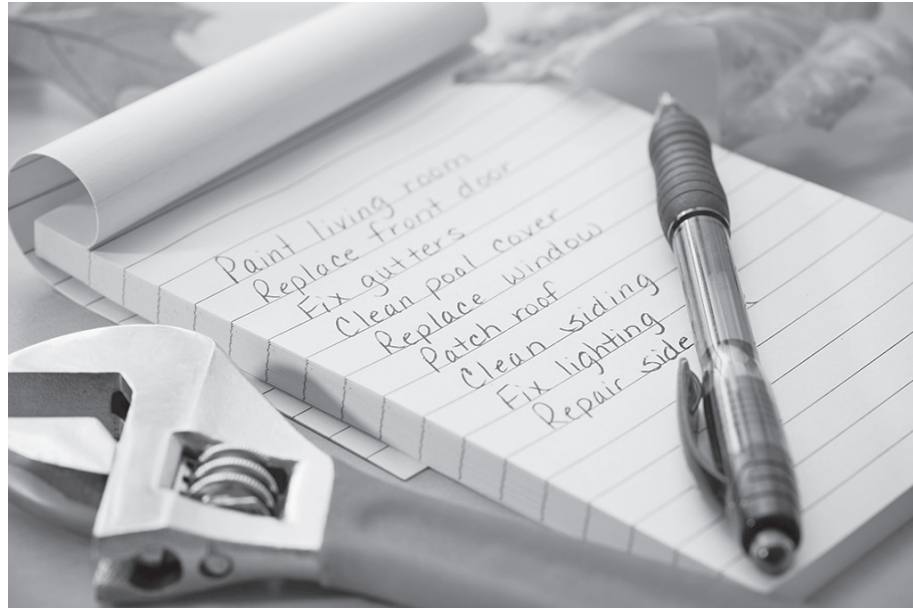 Paint living room
Replace front door
Fix gutters
Clean pool cover
Replace window
Patch roof
Clean siding
Fix lighting
Repair side